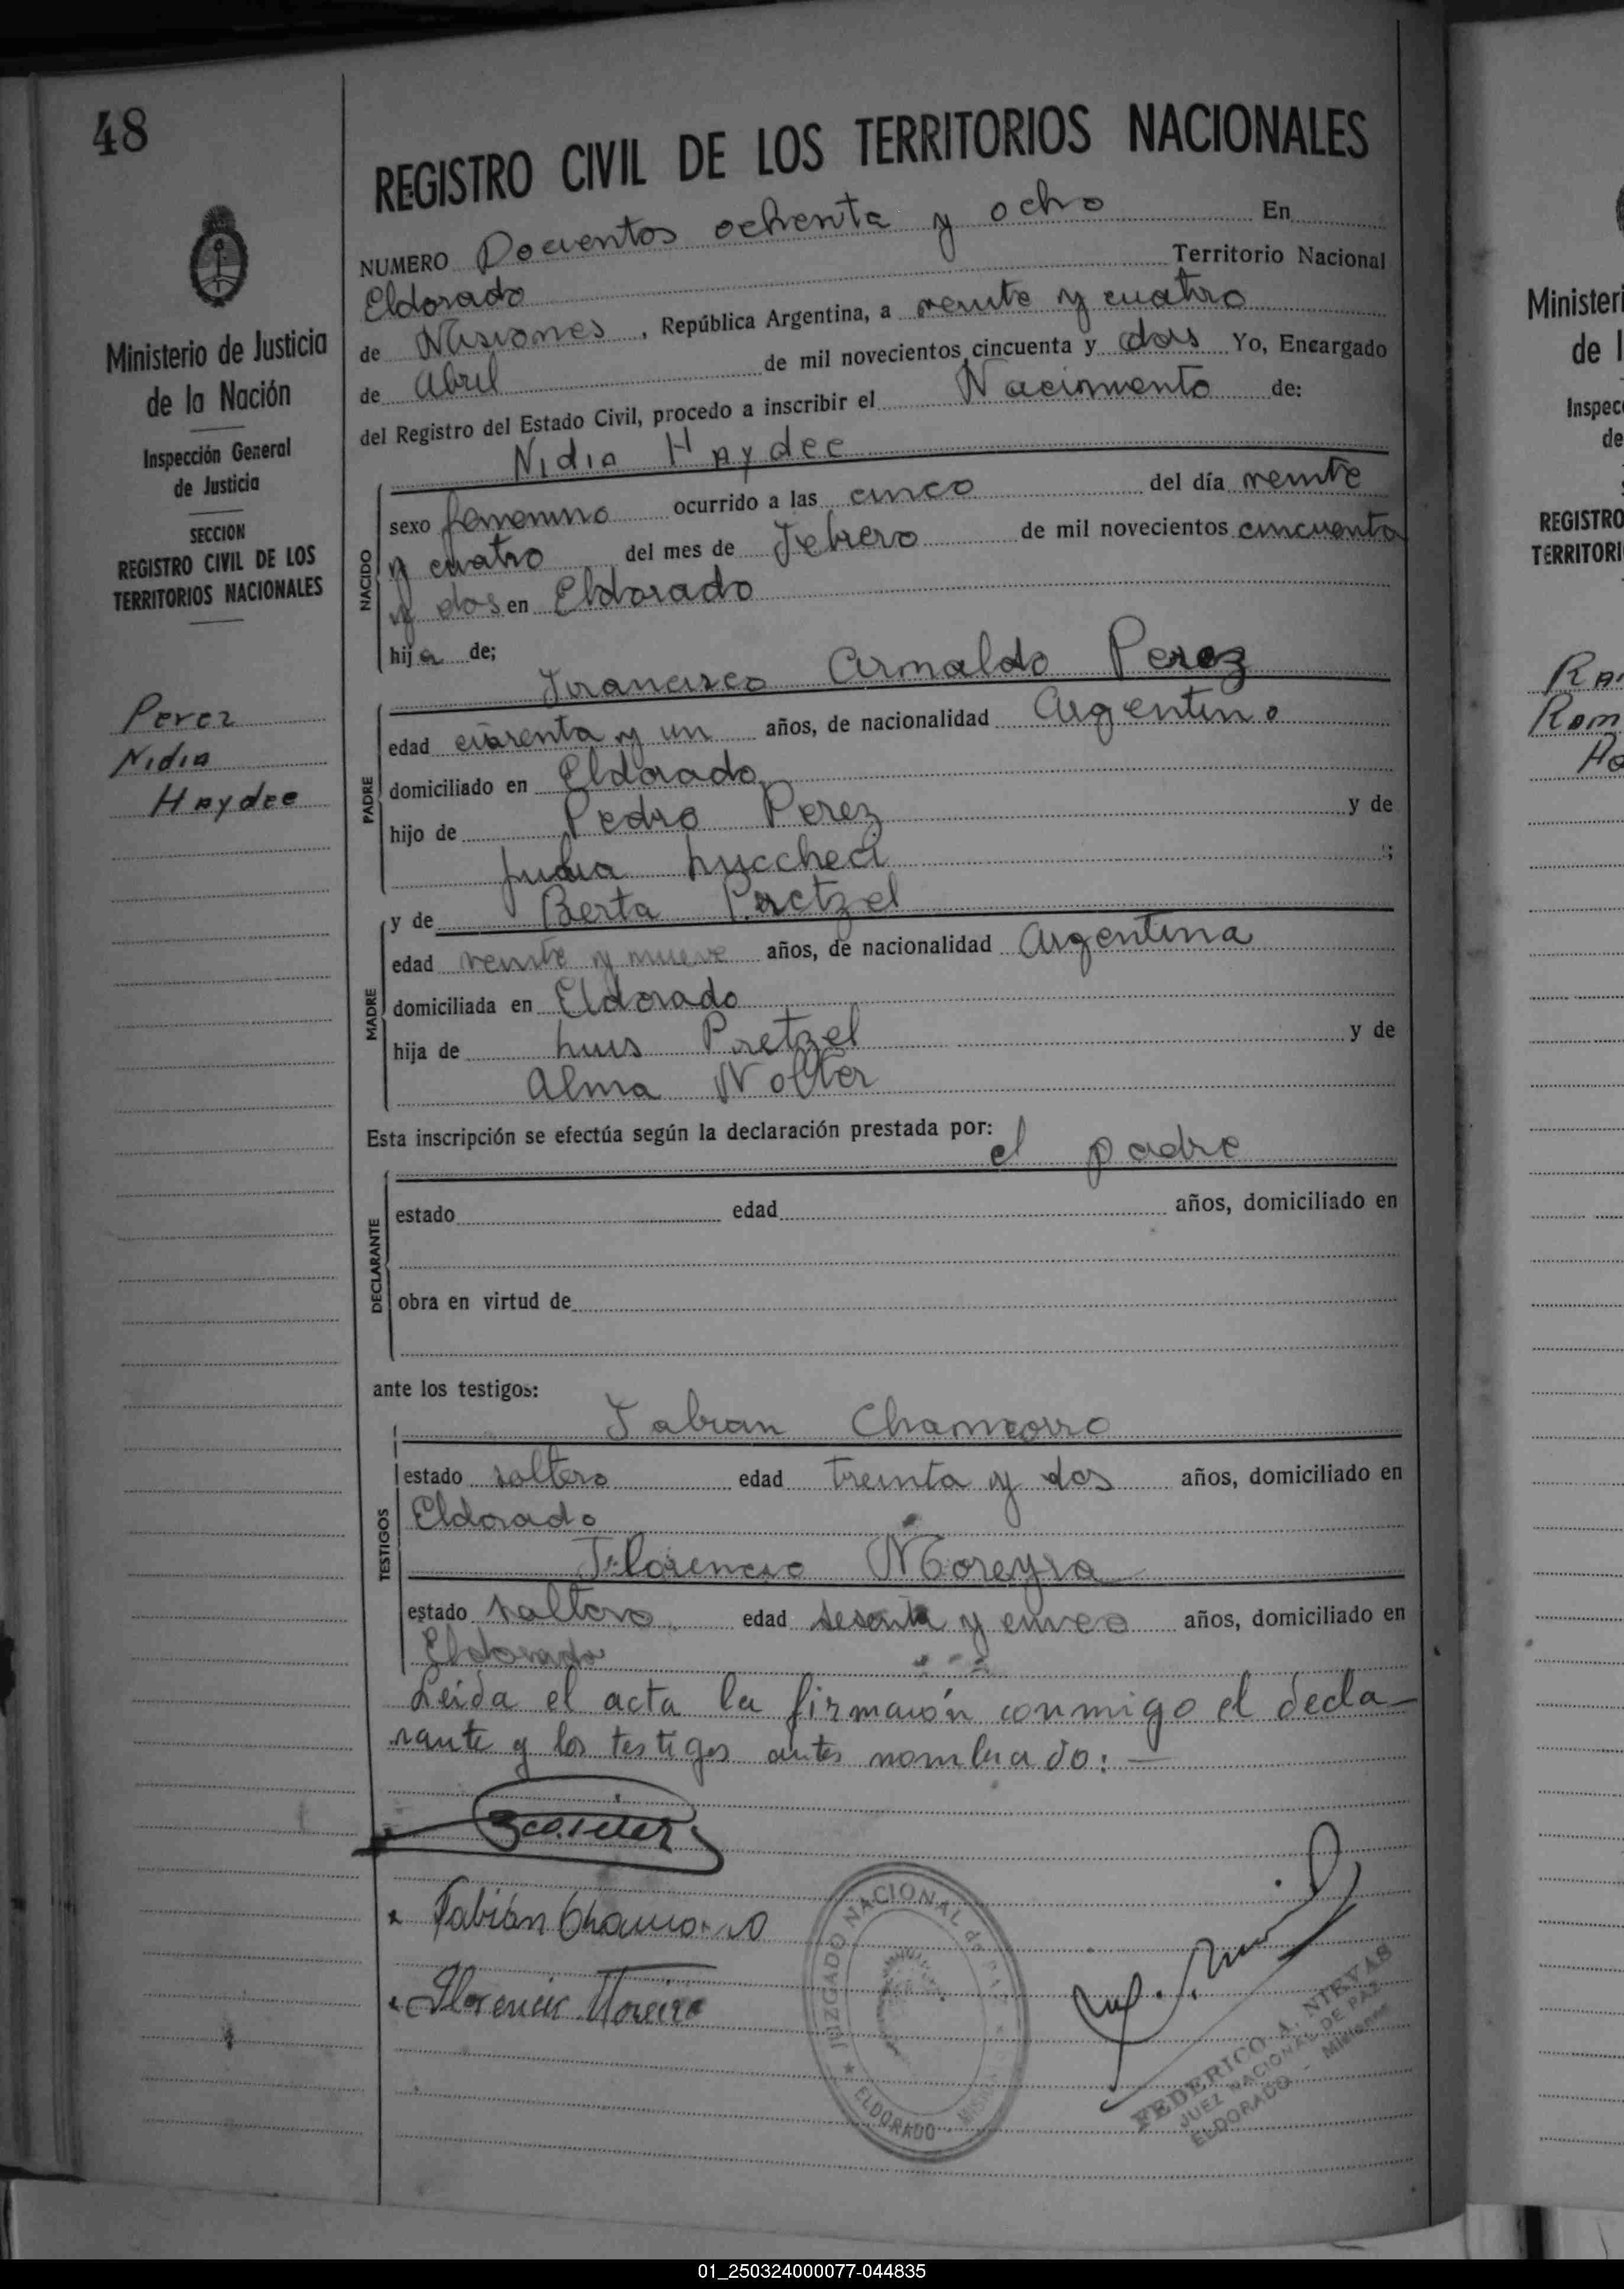 48
REGISTRO CIVIL DE LOS TERRITORIOS NACIONALES
NUMERO Docientos ochenta y ocho En
Eldorado Territorio Nacional
de Misiones, República Argentina, a veinte y cuatro
de Abril de mil novecientos cincuenta y dos Yo, Encargado
del Registro del Estado Civil, procedo a inscribir el Nacimiento de:
Nidia Haydee
NACIDO
sexo femenino ocurrido a las cinco del día veinte
y cuatro del mes de Febrero de mil novecientos cincuenta
y dos en Eldorado
hija de;
Francisco Arnaldo Perez
PADRE
edad cuarenta y un años, de nacionalidad Argentino
domiciliado en Eldorado
hijo de Pedro Perez y de
Julia ;
MADRE
y de Berta Pretzel
edad veinte y nueve años, de nacionalidad Argentina
domiciliada en Eldorado
hija de Luis Pretzel y de
Alma Wolter
Esta inscripción se efectúa según la declaración prestada por:
el padre
DECLARANTE
estado edad años, domiciliado en
obra en virtud de
ante los testigos:
TESTIGOS
Fabian Chamorro
estado soltero edad treinta y dos años, domiciliado en
Eldorado
Florencio Moreyra
estado soltero edad sesenta y cinco años, domiciliado en
Eldorado
Leida el acta la firmarón conmigo el decla-
rante y los testigos antes nombrado:—
Fabián Chamorro
Florencio Moreira
JUZGADO NACIONAL de PAZ
ELDORADO - MISIONES
FEDERICO A. NIEVAS
JUEZ NACIONAL DE PAZ
ELDORADO - Misiones
Ministerio de Justicia
de la Nación
Inspección General
de Justicia
SECCION
REGISTRO CIVIL DE LOS
TERRITORIOS NACIONALES
Perez
Nidia
Haydee
Ministeri
de l
Inspec
de
REGISTRO
TERRITORI
Ram
01_250324000077-044835